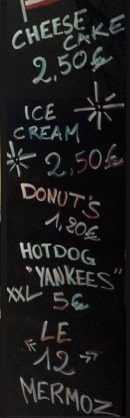 CHEESE
CAKE
2,50€
ICE
CREAM
2,50€
DONUT'S
1,20€
HOTDOG
"YANKEES"
XXL 5€
LE
12
MERMOZ